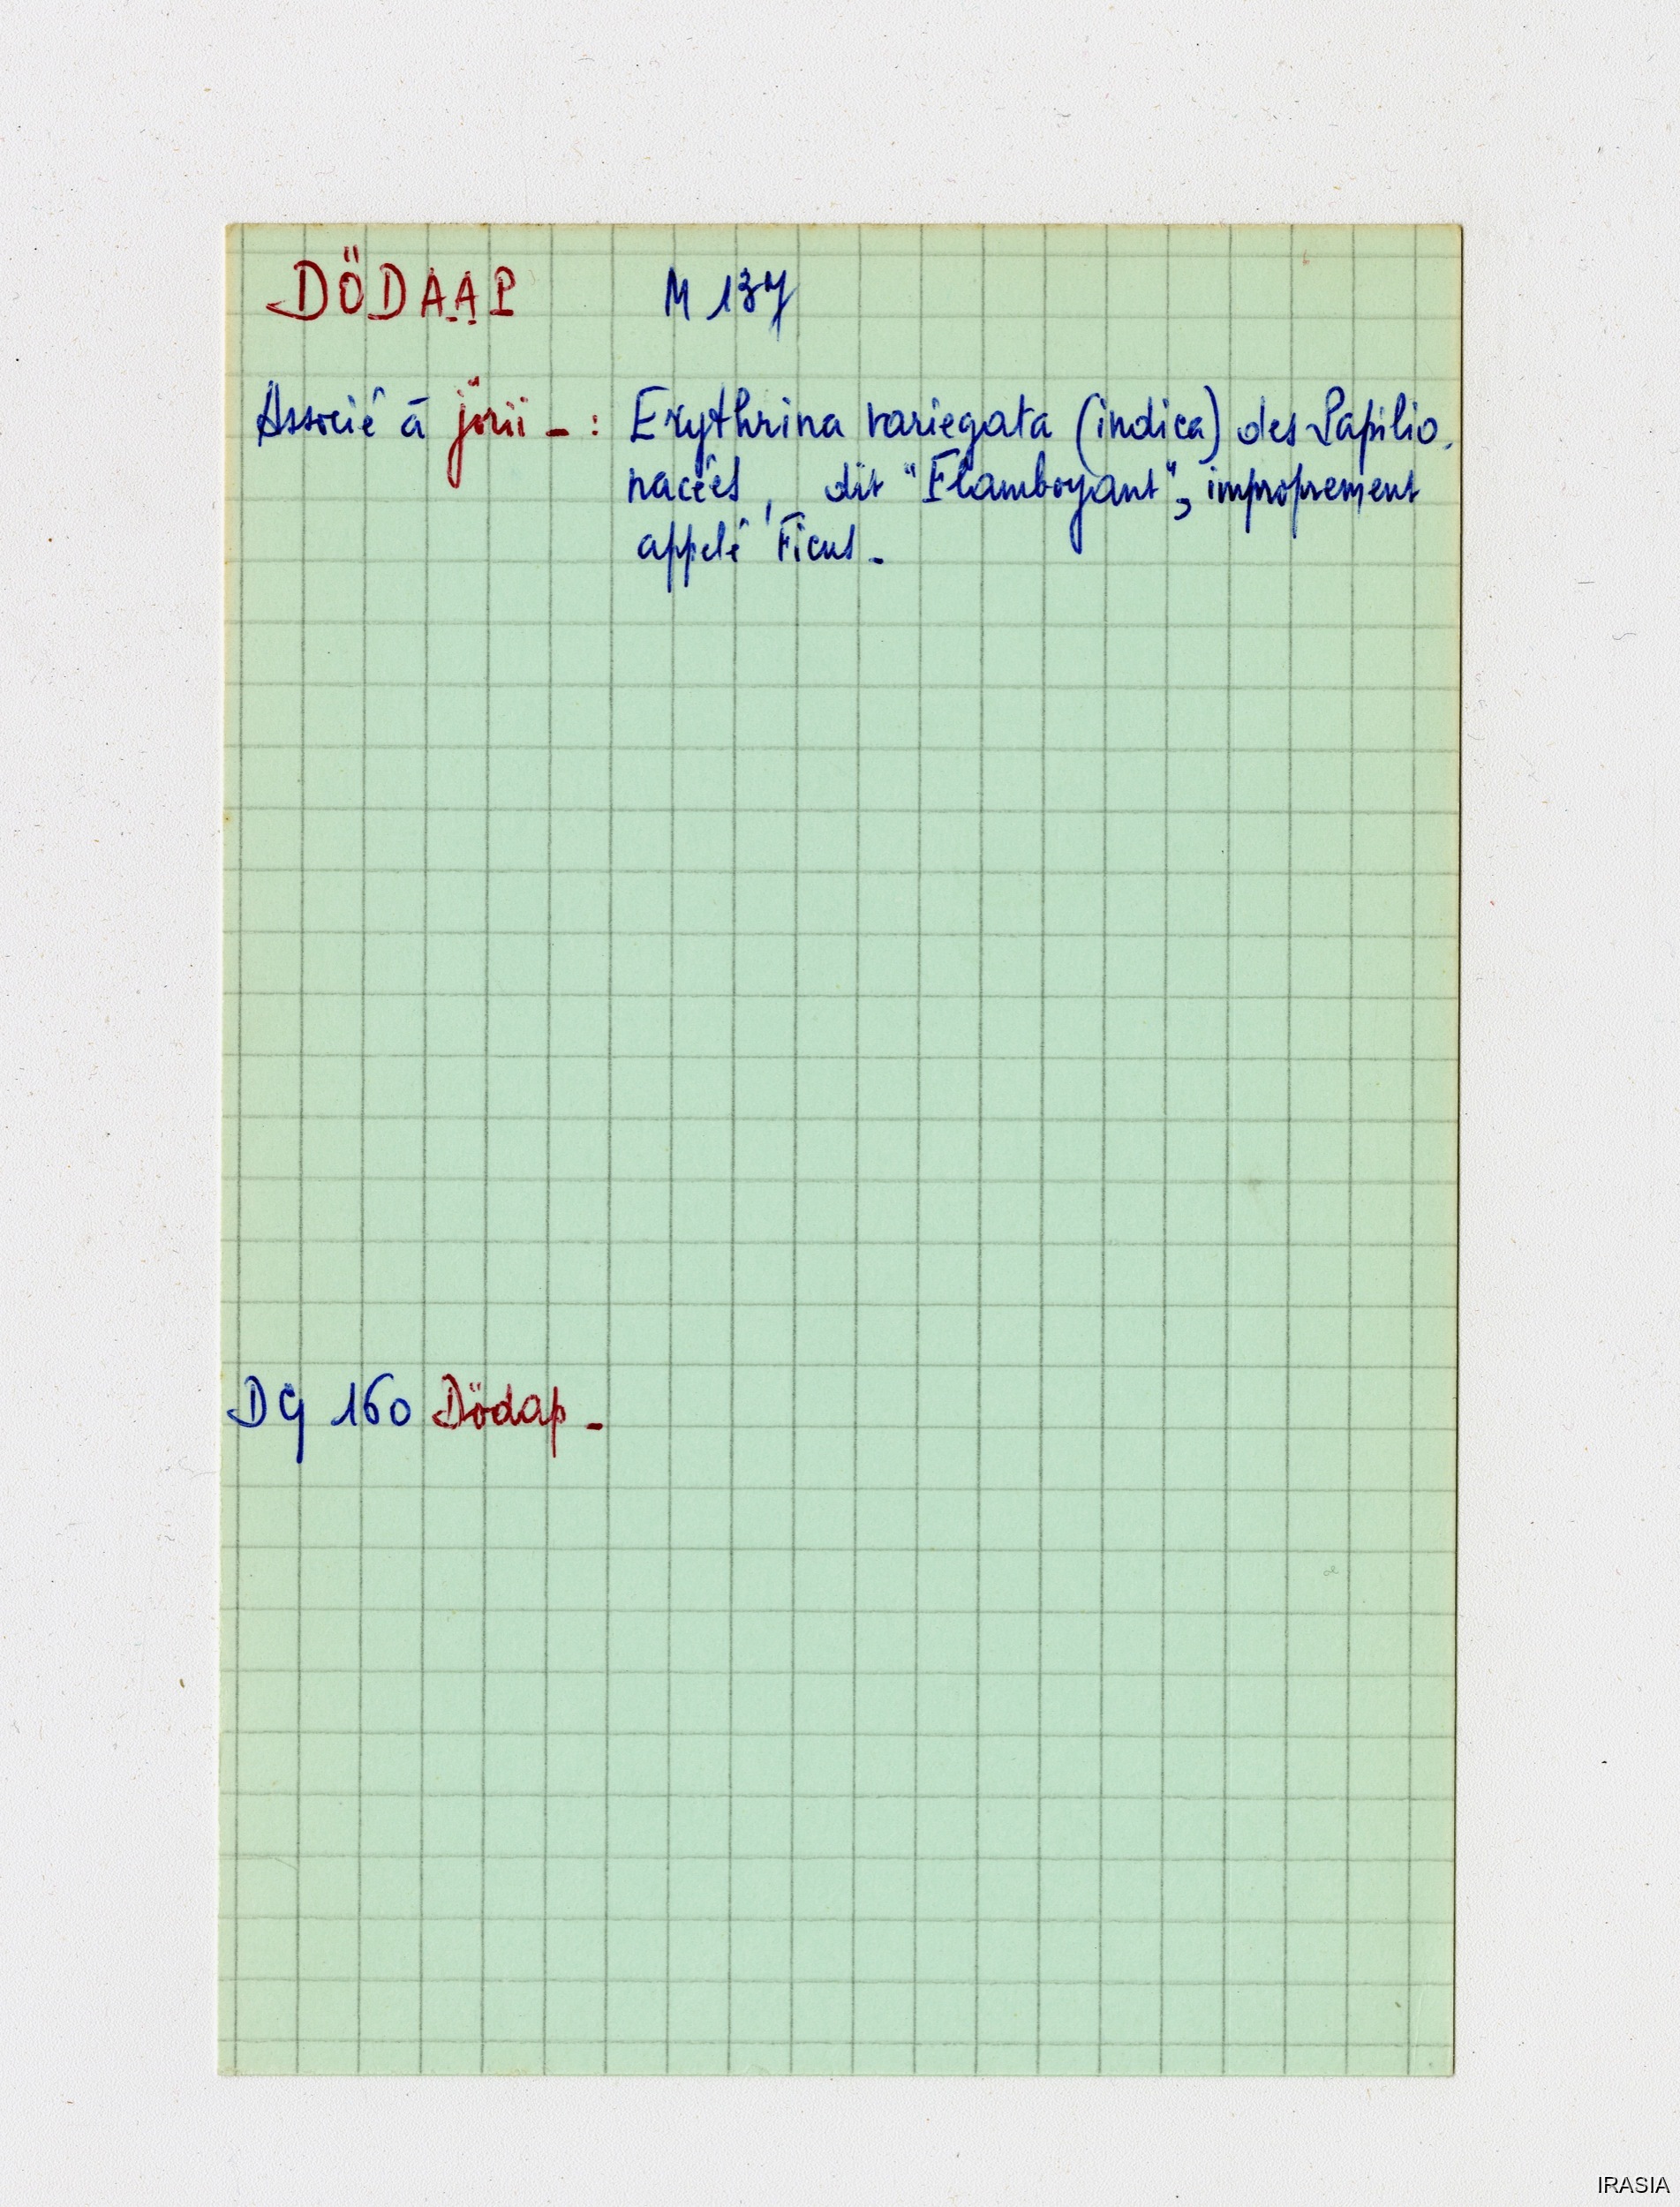 DÖDAAP M 137
Associé à jörii - : Erythrina variegata (indica) des Papilio-
nacées, dit "Flamboyant", improprement
appelé Ficus -
DG 160 Dödap -
IRASIA